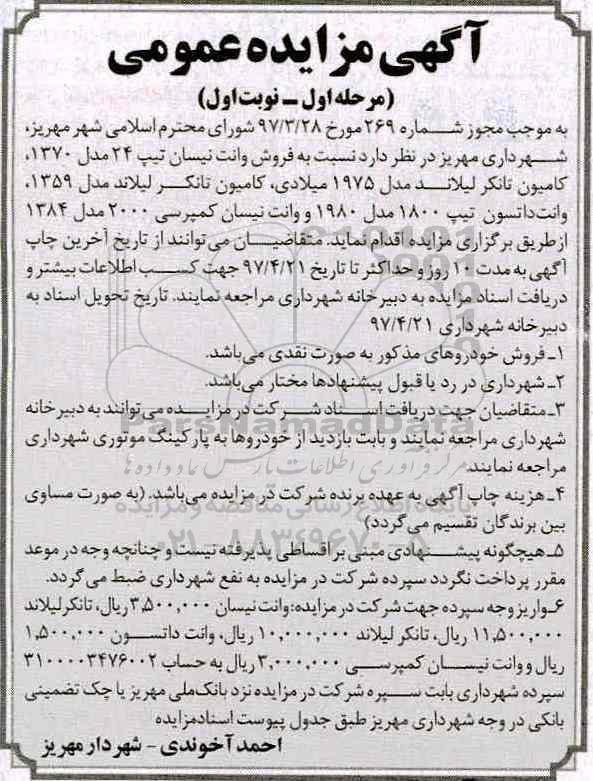 آگهی مزایده عمومی
(مرحله اول ـ نوبت اول)
به موجب مجوز شماره ۲۶۹ مورخ ۹۷/۳/۲۸ شورای محترم اسلامی شهر مهریز،
شهرداری مهریز در نظر دارد نسبت به فروش وانت نیسان تیپ ۲۴ مدل ۱۳۷۰،
کامیون تانکر لیلاند مدل ۱۹۷۵ میلادی، کامیون تانکر لیلاند مدل ۱۳۵۹،
وانت داتسون تیپ ۱۸۰۰ مدل ۱۹۸۰ و وانت نیسان کمپرسی ۲۰۰۰ مدل ۱۳۸۴
ازطریق برگزاری مزایده اقدام نماید. متقاضیان می‌توانند از تاریخ آخرین چاپ
آگهی به مدت ۱۰ روز و حداکثر تا تاریخ ۹۷/۴/۲۱ جهت کسب اطلاعات بیشتر و
دریافت اسناد مزایده به دبیرخانه شهرداری مراجعه نمایند. تاریخ تحویل اسناد به
دبیرخانه شهرداری ۹۷/۴/۲۱
۱ـ فروش خودروهای مذکور به صورت نقدی می‌باشد.
۲ـ شهرداری در رد یا قبول پیشنهادها مختار می‌باشد.
۳ـ متقاضیان جهت دریافت اسناد شرکت در مزایده می‌توانند به دبیرخانه
شهرداری مراجعه نمایند و بابت بازدید از خودروها به پارکینگ موتوری شهرداری
مراجعه نمایند.
۴ـ هزینه چاپ آگهی به عهده برنده شرکت در مزایده می‌باشد. (به صورت مساوی
بین برندگان تقسیم می‌گردد)
۵ـ هیچگونه پیشنهادی مبنی بر اقساطی پذیرفته نیست و چنانچه وجه در موعد
مقرر پرداخت نگردد سپرده شرکت در مزایده به نفع شهرداری ضبط می‌گردد.
۶ـ واریز وجه سپرده جهت شرکت در مزایده: وانت نیسان ۳,۵۰۰,۰۰۰ ریال، تانکر لیلاند
۱۱,۵۰۰,۰۰۰ ریال، تانکر لیلاند ۱۰,۰۰۰,۰۰۰ ریال، وانت داتسون ۱,۵۰۰,۰۰۰
ریال و وانت نیسان کمپرسی ۳,۰۰۰,۰۰۰ ریال به حساب ۳۱۰۰۰۰۳۴۷۶۰۰۲
سپرده شهرداری بابت سپره شرکت در مزایده نزد بانک ملی مهریز یا چک تضمینی
بانکی در وجه شهرداری مهریز طبق جدول پیوست اسناد مزایده
احمد آخوندی - شهردار مهریز
ParsNamadData
مرکز فرآوری اطلاعات پارس نماد داده‌ها
پایگاه اطلاع رسانی مناقصه و مزایده
۰۲۱-۸۸۳۴۹۶۷۰-۵